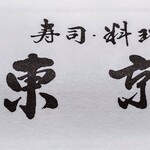 寿司·料理
東京